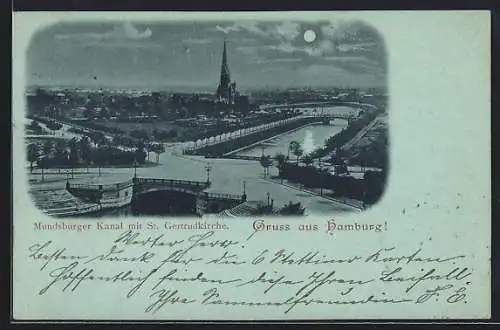 Mundsburger Kanal mit St. Gertrudkirche.
Gruss aus Hamburg!
Werter Herr!
Besten Dank für die 6 Stettiner Karten
Hoffentlich finden diese Ihren Beifall.
Ihre Sammelfreundin F. E.